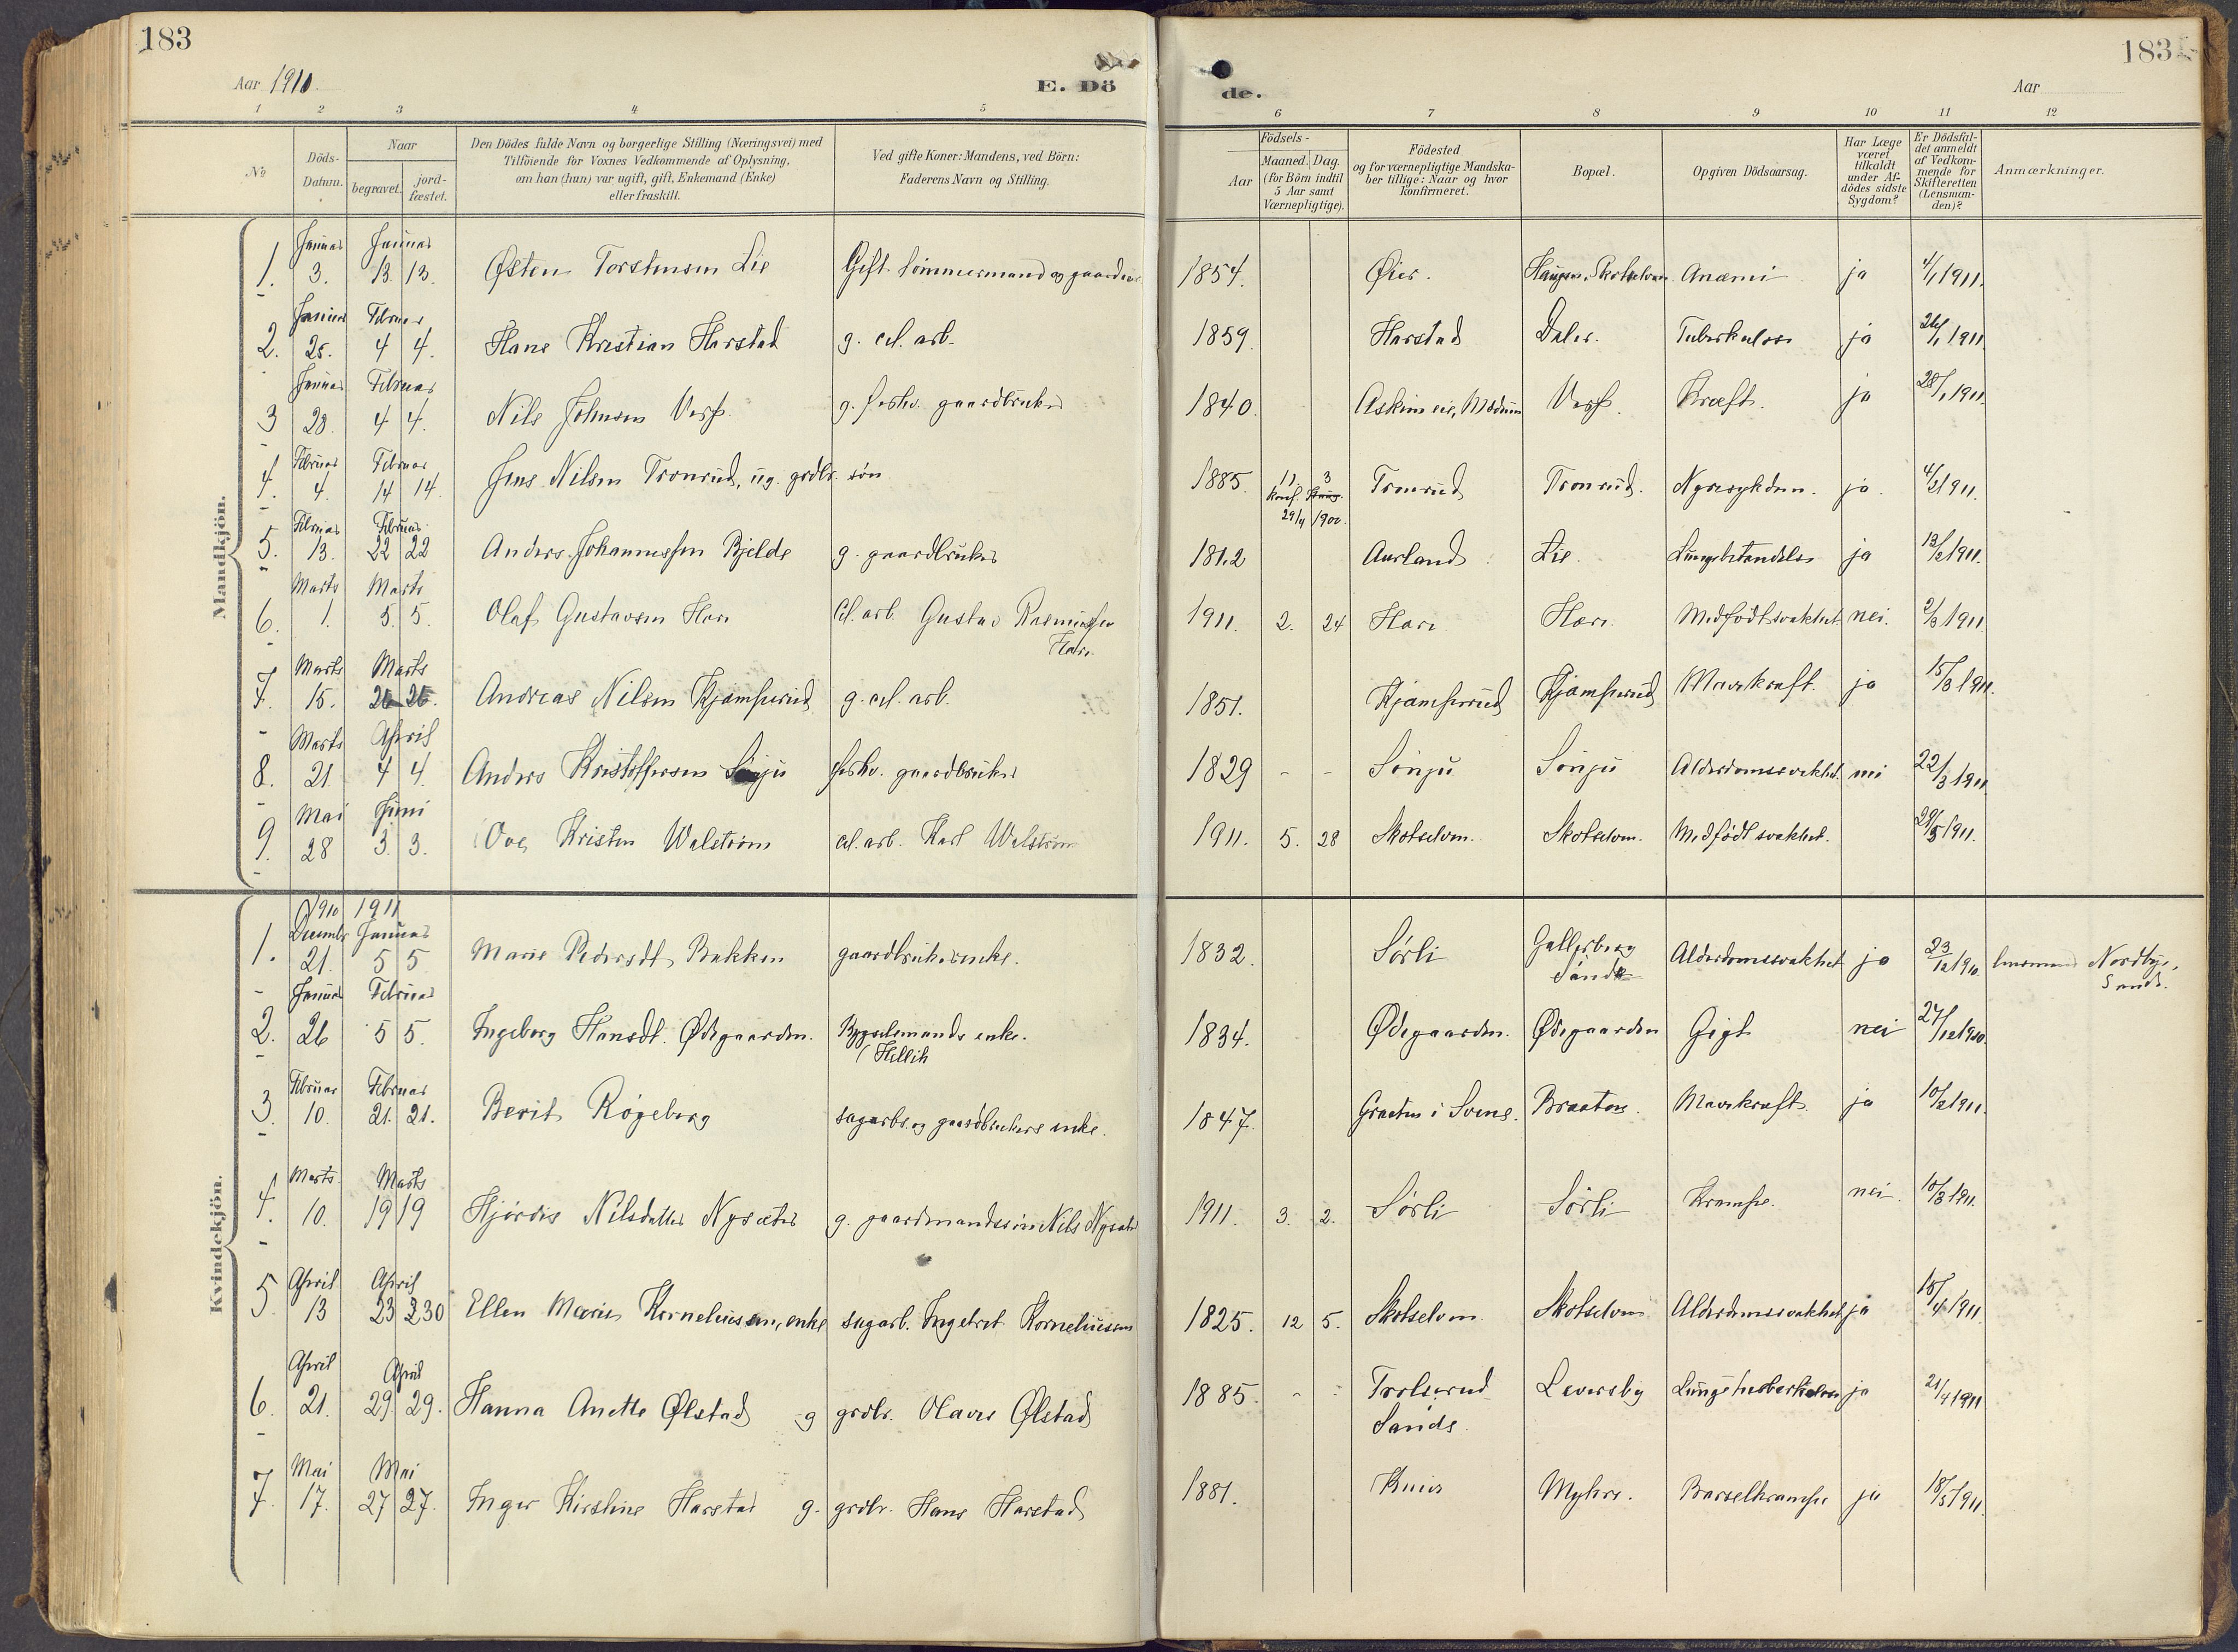 183
Aar 1911.
E. Dö
1 2 3 4 5
№
Döds-Datum.
Naar
begravet.
jord-fæstet.
Den Dödes fulde Navn og borgerlige Stilling (Næringsvei) med
Tilföiende for Voxnes Vedkommende af Oplysning,
om han (hun) var ugift, gift, Enkemand (Enke)
eller fraskilt.
Ved gifte Koner: Mandens, ved Börn:
Faderens Navn og Stilling.
183
de.
Aar
6 7 8 9 10 11 12
Aar
Födsels-
Maaned. Dag.
(for Börn indtil
5 Aar samt
Værnepligtige).
Födested
og for værnepligtige Mandska-
ber tillige: Naar og hvor
konfirmeret.
Bopæl.
Opgiven Dödsaarsag.
Har Læge
været
tilkaldt
under Af-
dödes sidste
Sygdom?
Er Dödsfal-
det anmeldt
af Vedkom-
mende for
Skifteretten
(Lensman-
den)?
Anmærkninger.
Mandkjön.
Januar Januar
1. 3. 13. 13. Østen Torstensen Lie Gift. tømmermand og 1854. Øier. Haugen, Skotselven Anæmi ja 4/1 1911.
Januar Februar
2. 25. 4 4. Hans Kristian Harstad g. cel. arb. 1859. Harstad Daler. Tuberkulose ja 26/1 1911
Januar Februar
3 28. 4 4. Nils Johnsen Verp. g. forhv. gaardbruker 1840. Askim eie, Modum Verp. Kræft. ja 28/1 1911.
Februar Februar
4. 4. 14 14. Jens Nilsen Tronrud, ug. grdbr. søn 1885. 11 3 Tronrud Tronrud. Nyresykdom. ja. 4/2 1911.
Konf.
29/4 1900.
Februar Februar
5. 13. 22 22 Anders Johannessen Bjelde g. gaardbruker 1842 Aurland Lie. Lungebetændelse ja 13/2 1911.
Marts Marts
6. 1. 5. 5. Olaf Gustavsen Hære Cel. arb. Gustav Rasmussen 1911. 2. 24 Hære Hære. Medfødt svakhet nei. 2/3 1911.
Hære.
Marts Marts
7. 15. 26 26. Andreas Nilsen Kjæmperud g. cel. arb. 1851. Kjæmperud Kjæmperud Mavekræft. ja 15/3 1911.
Marts April
8. 21 4 4. Anders Kristoffersen Sønju forhv. gaardbruker 1829 - - Sønju Sønju Alderdomssvakhet. nei 22/3 1911
Mai Juni
9. 28 3. 3. Ove Kristen Walstrøm cel. arb. Karl Walstrøm 1911. 5. 28 Skotselven. Skotselven. Medfødt svakhet. 29/5 1911.
Kvindekjön.
1910 1911
Decembr Januar
1. 21. 5 5 Marie Pedersdt. Bakken gaardbrukerenke. 1832. Sørli Gallerberg Alderdomssvakhet ja 23/12 1910. lensmand Nordbye,
Sande Sande.
Januar Februar
2. 26 5 5. Ingeborg Hansdt. Ødegaarden. Bygselmands enke. 1834. Ødegaarden. Ødegaarden Gigt nei 27/12 1910.
(Hellik
Februar Februar
3. 10. 21. 21. Berit Røgeberg sagarb. og gaardbrukers enke. 1847. Braaten i Svene. Braaten. Mavekræft. ja 10/2 1911.
Marts. Marts
4. 10. 19 19 Hjørdis Nilsdatter Nysæter g. gaardmandssøn Nils Nysæter 1911. 3. 2. Sørli Sørli Krampe. nei. 10/3 1911.
April April
5. 13 23 230 Ellen Marie Korneliussen, enke sagarb. Ingebret Korneliussen 1825. 12 5. Skotselven. Skotselven Alderdomssvakhet ja 15/4 1911
April April
6. 21. 29. 29. Hanna Anette Ølstad g grdbr. Olaves Ølstad 1885. - - Trolserud Leversby Lungetuberkulose ja 21/4 1911
Sande.
Mai Mai
7. 17. 27 27. Inger Kirstine Harstad g. grdbr. Hans Harstad 1881. Knive Myhre. Barselkrampe ja 18/5 1911.